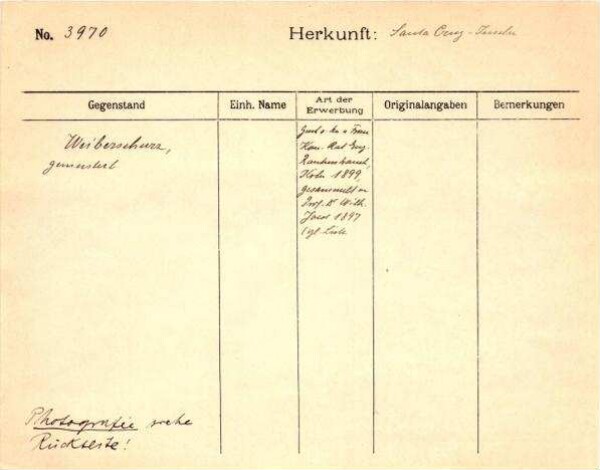 No. 3970
Herkunft: Santa Cruz-Inseln
Gegenstand
Einh. Name
Art der Erwerbung
Originalangaben
Bemerkungen
Weiberschurz,
gemustert
Gesch. v. H. u. Frau
Kom. Rat Eug.
Rautenstrauch,
Köln 1899,
gesammelt v.
Prof. Dr. Wilh.
Joest 1897
(gl. Liste
Photografie siehe
Rückseite!